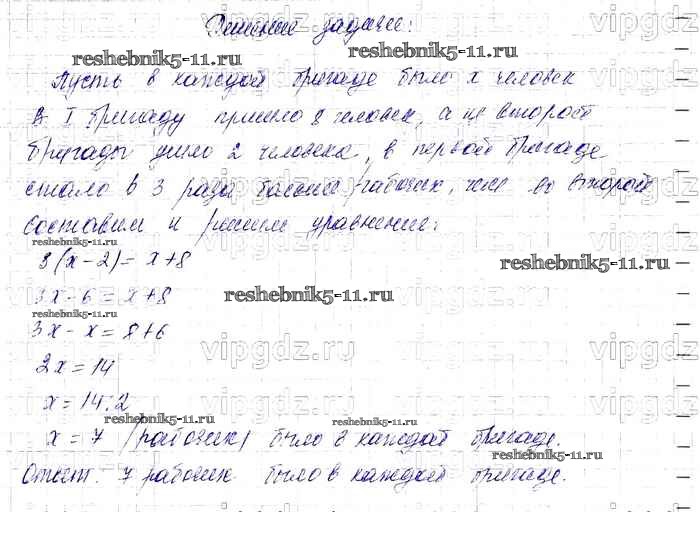 Решение задачи:
Пусть в каждой бригаде было x человек
В I бригаду пришло 8 человек, а из второй
бригады ушло 2 человека, в первой бригаде
стало в 3 раза больше рабочих, чем во второй
Составим и решим уравнение:
3(x-2)=x+8
3x-6=x+8
3x-x=8+6
2x=14
x=14:2
x=7 (рабочих) было в каждой бригаде.
Ответ: 7 рабочих было в каждой бригаде.
vipgdz.ru
reshebnik5-11.ru
reshebnik5-11.ru
vipgdz.ru
vipgdz.ru
vipgdz.ru
vipgdz.ru
reshebnik5-11.ru
reshebnik5-11.ru
vipgdz.ru
reshebnik5-11.ru
vipgdz.ru
reshebnik5-11.ru
vipgdz.ru
vipgdz.ru
reshebnik5-11.ru
reshebnik5-11.ru
vipgdz.ru
reshebnik5-11.ru
vipgdz.ru